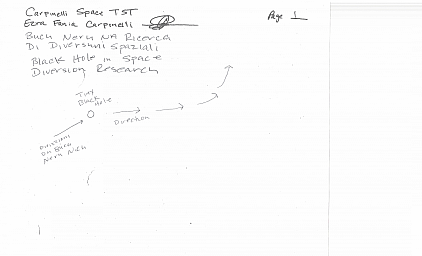 Carpinelli Space TST
Page 1
Ezra Fania Carpinelli
Bucu Neru Na Ricerca
Di Diversuni Spaziali
Black Hole in Space
Diversion Research
Tiny
Black
Hole
Direction